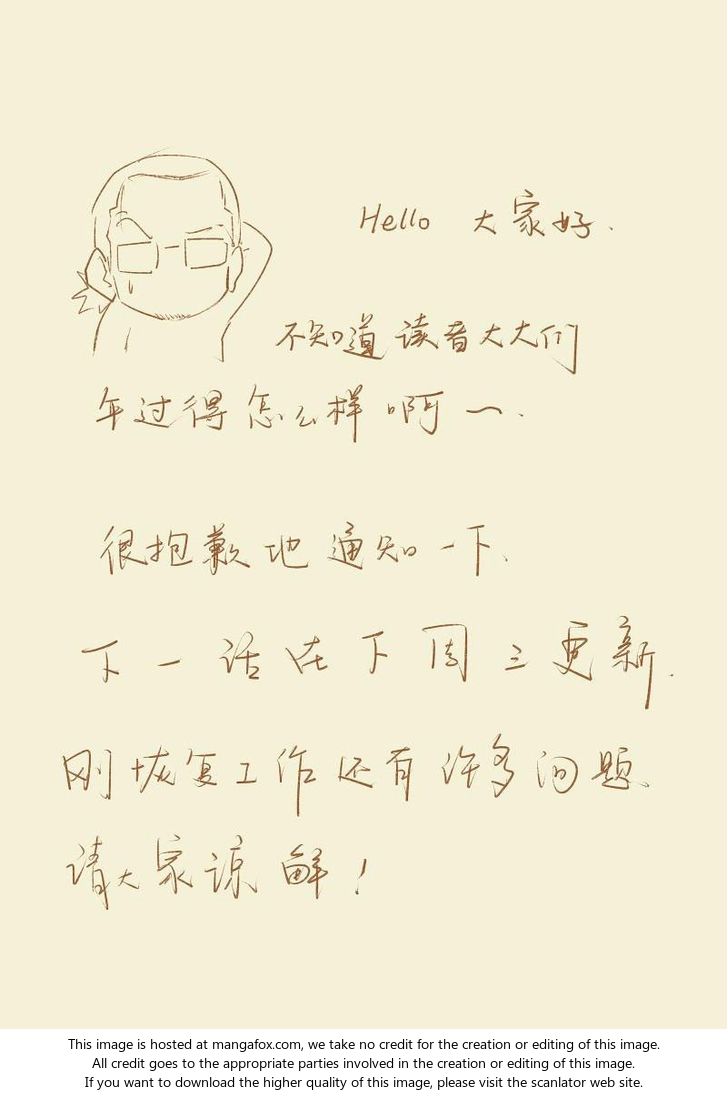 Hello 大家好.
不知道读者大大们
年过得怎么样啊～.
很抱歉地通知一下.
下一话在下周三更新.
刚恢复工作还有许多问题.
请大家谅解！
This image is hosted at mangafox.com, we take no credit for the creation or editing of this image.
All credit goes to the appropriate parties involved in the creation or editing of this image.
If you want to download the higher quality of this image, please visit the scanlator web site.